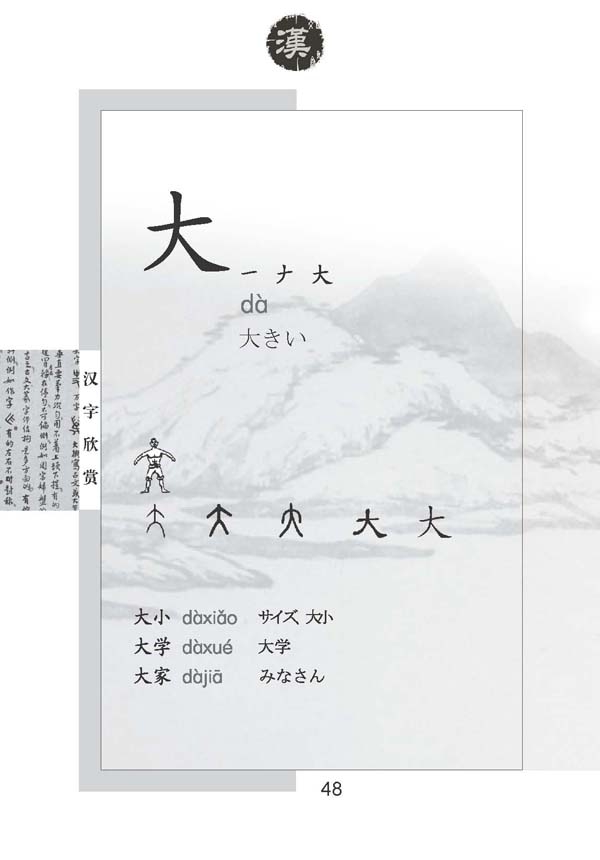 漢
大
一 ナ 大
dà
大きい
汉字欣赏
大 大 大 大 大
大小 dàxiǎo サイズ、大小
大学 dàxué 大学
大家 dàjiā みなさん
48